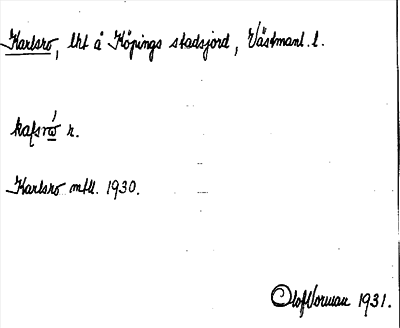 Karlsro, lht å Köpings stadsjord, Västmanl. l.
kaſsrẃ r.
Karlsro mtll. 1930.
Olof Norman 1931.